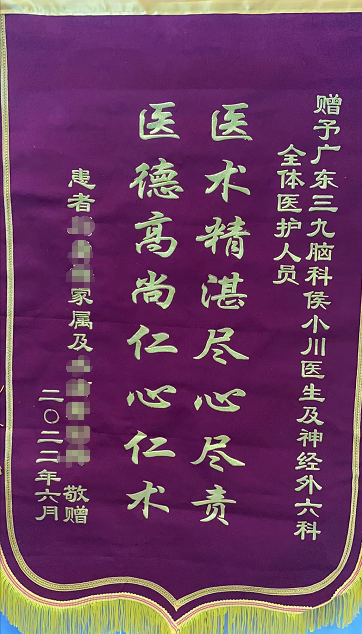 赠予广东三九脑科侯小川医生及神经外六科
全体医护人员
医术精湛尽心尽责
医德高尚仁心仁术
患者家属及敬赠
二〇二二年六月